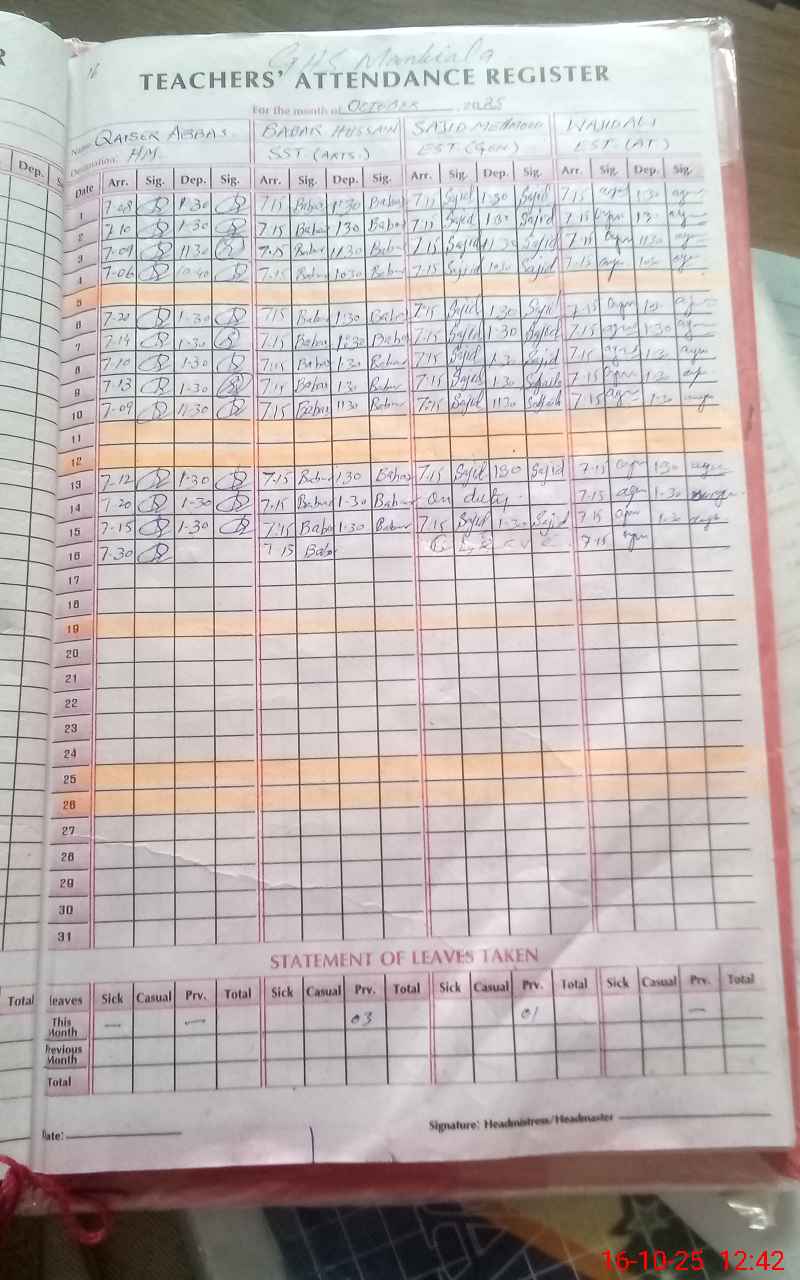 16
GHS Mankiala
TEACHERS' ATTENDANCE REGISTER
For the month of OCTOBER 2025
Name: QAISER ABBAS. BABAR HUSSAIN SAJID MEHMOOD WAJID ALI
Designation: HM. SST (ARTS.) EST (GEN) EST (AT)
Dep.
Date Arr. Sig. Dep. Sig. Arr. Sig. Dep. Sig. Arr. Sig. Dep. Sig. Arr. Sig. Dep. Sig.
1 7-08 1-30 7.15 Babar 1:30 Babar 7.15 Sajid 1:30 Sajid 7.15 1.30
2 7.10 1-30 7.15 Babar 1.30 Babar 7.15 Sajid 1.30 Sajid 7.15
3 7-09 11.30 7.15 Babar 11.30 Babar 7.15 Sajid 11.30 Sajid 7.15 11.30
4 7-06 10.40 7.15 Babar 10.30 Babar 7.15 Sajid 10.30 Sajid 7.15
5
6 7-20 1-30 7.15 Babar 1.30 Babar 7.15 Sajid 1.30 Sajid 7.15
7 7.14 1-30 7.15 Babar 1:30 Babar 7.15 Sajid 1-30 Sajid 7.15 1-30
8 7.10 1-30 7.15 Babar 1.30 Babar 7.15 Sajid 1.30 Sajid 7.15 1.30
9 7-13 1-30 7.15 Babar 1.30 Babar 7.15 Sajid 1.30 7.15 1.30
10 7-09 11-30 7.15 Babar 11.30 Babar 7.15 Sajid 11.30 7.15
11
12
13 7-12 1-30 7.15 Babar 1.30 Babar 7.15 Sajid 1.30 Sajid 7.15 1.30
14 7-20 1-30 7.15 Babar 1-30 Babar on duty. 7.15 1-30
15 7-15 1-30 7.15 Babar 1-30 Babar 7.15 Sajid 1-30 Sajid 7.15 1-30
16 7-30 7.15 Babar 7.15
17
18
19
20
21
22
23
24
25
26
27
28
29
30
31
STATEMENT OF LEAVES TAKEN
Total leaves Sick Casual Prv. Total Sick Casual Prv. Total Sick Casual Prv. Total Sick Casual Prv. Total
This Month — — 03 01 —
Previous Month
Total
Date: Signature: Headmistress/Headmaster
16-10-25 12:42